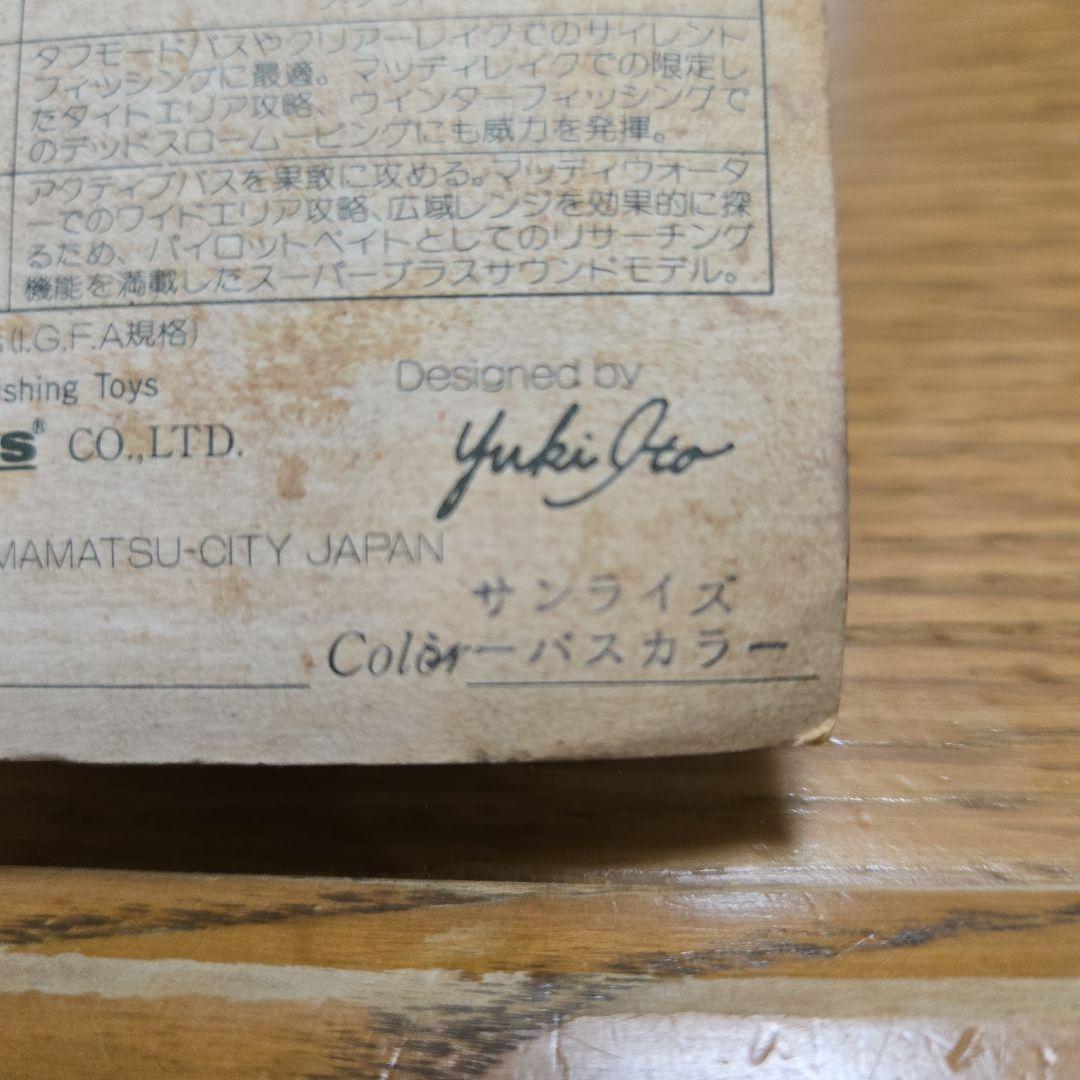 タフモードバスやクリアーレイクでのサイレント
フィッシングに最適。マッディレイクでの限定し
たタイトエリア攻略、ウインターフィッシングで
のデッドスロームービングにも威力を発揮。
アクティブバスを果敢に攻める。マッディウォータ
ーでのワイドエリア攻略、広域レンジを効果的に探
るため、パイロットベイトとしてのリサーチング
機能を満載したスーパーブラスサウンドモデル。
s(I.G.F.A規格)
ishing Toys
s® CO.,LTD.
Designed by
Yuki Ito
MAMATSU-CITY JAPAN
サンライズ
Color ーバスカラー